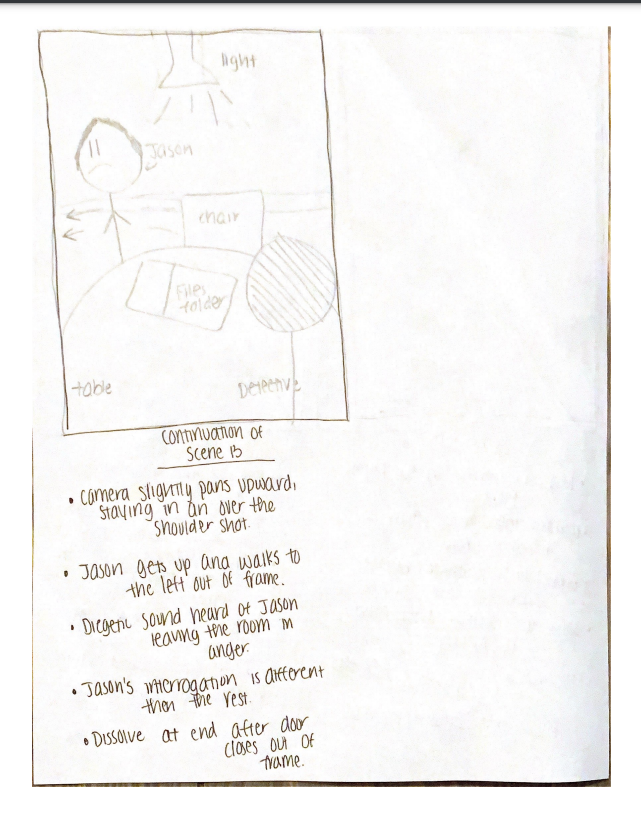 light
Jason
chair
Files
folder
table
Detective
Continuation of
Scene 13
• Camera slightly pans upward,
staying in an over the
shoulder shot.
• Jason gets up and walks to
the left out of frame.
• Diegetic sound heard of Jason
leaving the room in
anger.
• Jason's interrogation is different
then the rest.
• Dissolve at end after door
closes out of
frame.